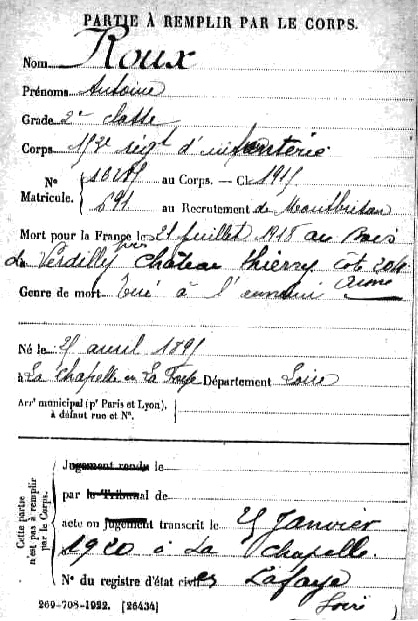 PARTIE À REMPLIR PAR LE CORPS.
Nom Roux
Prénoms Antoine
Grade 2e classe
Corps régt d'infanterie
N° au Corps. — Cl. 1915
Matricule. 691 au Recrutement de Montbrison
Mort pour la France le 21 juillet 1918 au Bois
de Verdilly près Château thierry Cote 204
Aisne
Genre de mort tué à l'ennemi
Né le avril 1895
à La Chapelle en La Faye Département Loire
Arrt municipal (pr Paris et Lyon),
à défaut rue et N°.
Cette partie
n'est pas à remplir
par le Corps.
Jugement rendu le
par le Tribunal de
acte ou jugement transcrit le 25 Janvier
1920 à La Chapelle
N° du registre d'état civil en Lafaye
Loire
269-708-1922. [26434]